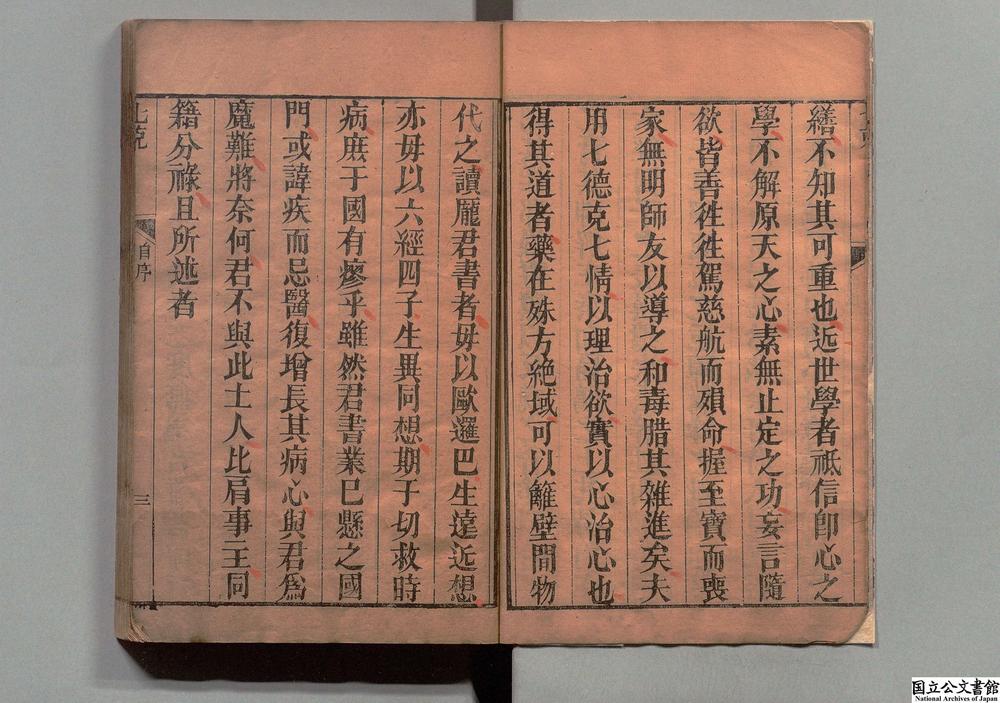 繕不知其可重也近世學者祗信卽心之
學不解原天之心素無止定之功妄言隨
欲皆善徃徃駕慈航而殞命握至寶而喪
家無明師友以導之和毒腊其雜進矣夫
用七德克七情以理治欲實以心治心也
得其道者藥在殊方絶域可以籬壁間物
代之讀龐君書者毋以歐邏巴生遠近想
亦毋以六經四子生異同想期于切救時
病庶于國有瘳乎雖然君書業已懸之國
門或諱疾而忌醫復增長其病心與君爲
魔難將奈何君不與此土人比肩事主同
籍分祿且所述者
七克
自序
三
国立公文書館
National Archives of Japan